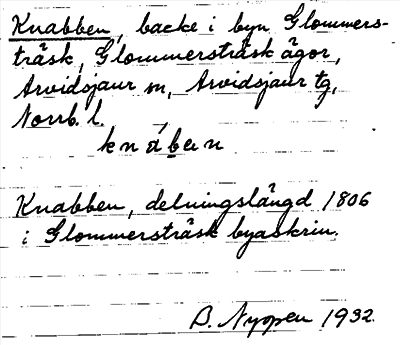 Knabben, backe i byn Glommers-
träsk, Glommersträsk ägor,
Arvidsjaur sn, Arvidsjaur tg,
Norrb. l.
knában
Knabben, delningslängd 1806
i Glommersträsk byaskrin.
B. Nyopen 1932.